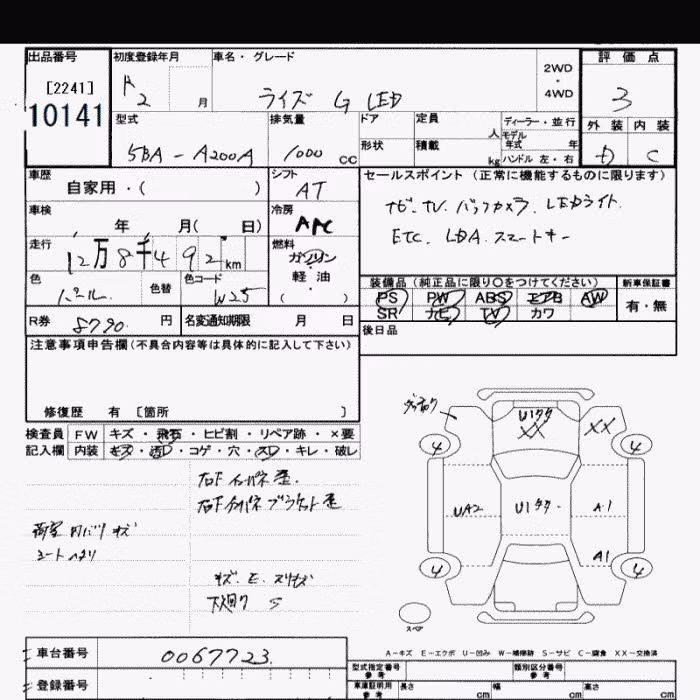 出品番号 初度登録年月 車名・グレード 評価点
[2241] R2 月 ライズ G LED 2WD・4WD 3
10141
型式 排気量 ドア 定員 人 ディーラー・並行 外装 内装
5BA-A200A 1000 cc 形状 積載 kg モデル年式 年 ハンドル 左・右 D C
車歴 シフト セールスポイント(正常に機能するものに限ります)
自家用・( ) AT
車検 冷房 ナビ.TV.バックカメラ.LEDライト.
年 月( 日) AAC ETC. LDA. スマートキー
走行 燃料
12万8千492km ガソリン・軽油・( )
色 色替 色コード 装備品(純正品に限り○をつけてください) 新車保証書
パール. W25 PS PW ABS エアB AW 有・無
SR ナビ TV カワ
R券 8790. 円 名変通知期限 月 日 後日品
注意事項申告欄(不具合内容等は具体的に記入して下さい)
修復歴 有 [箇所 ]
検査員 FW キズ・飛石・ヒビ割・リペア跡・×要
記入欄 内装 キズ・汚れ・コゲ・穴・スレ・キレ・破レ
右F インパネ 歪.
右F インパネブラケット歪
荷室 内バリ キズ
シートヘタリ
キズ. E. スリキズ
下廻り S
U1タタ
XX XX
4 4
UA2 U1タタ. A1
A1
4 4
スペア
A-キズ E-エクボ U-凹み W-補修跡 S-サビ C-腐食 XX-交換済
車台番号 0067723.
型式指定番号 参考 類別区分番号 参考
登録番号 車庫証明用 参考 長さ cm 幅 cm 高さ cm